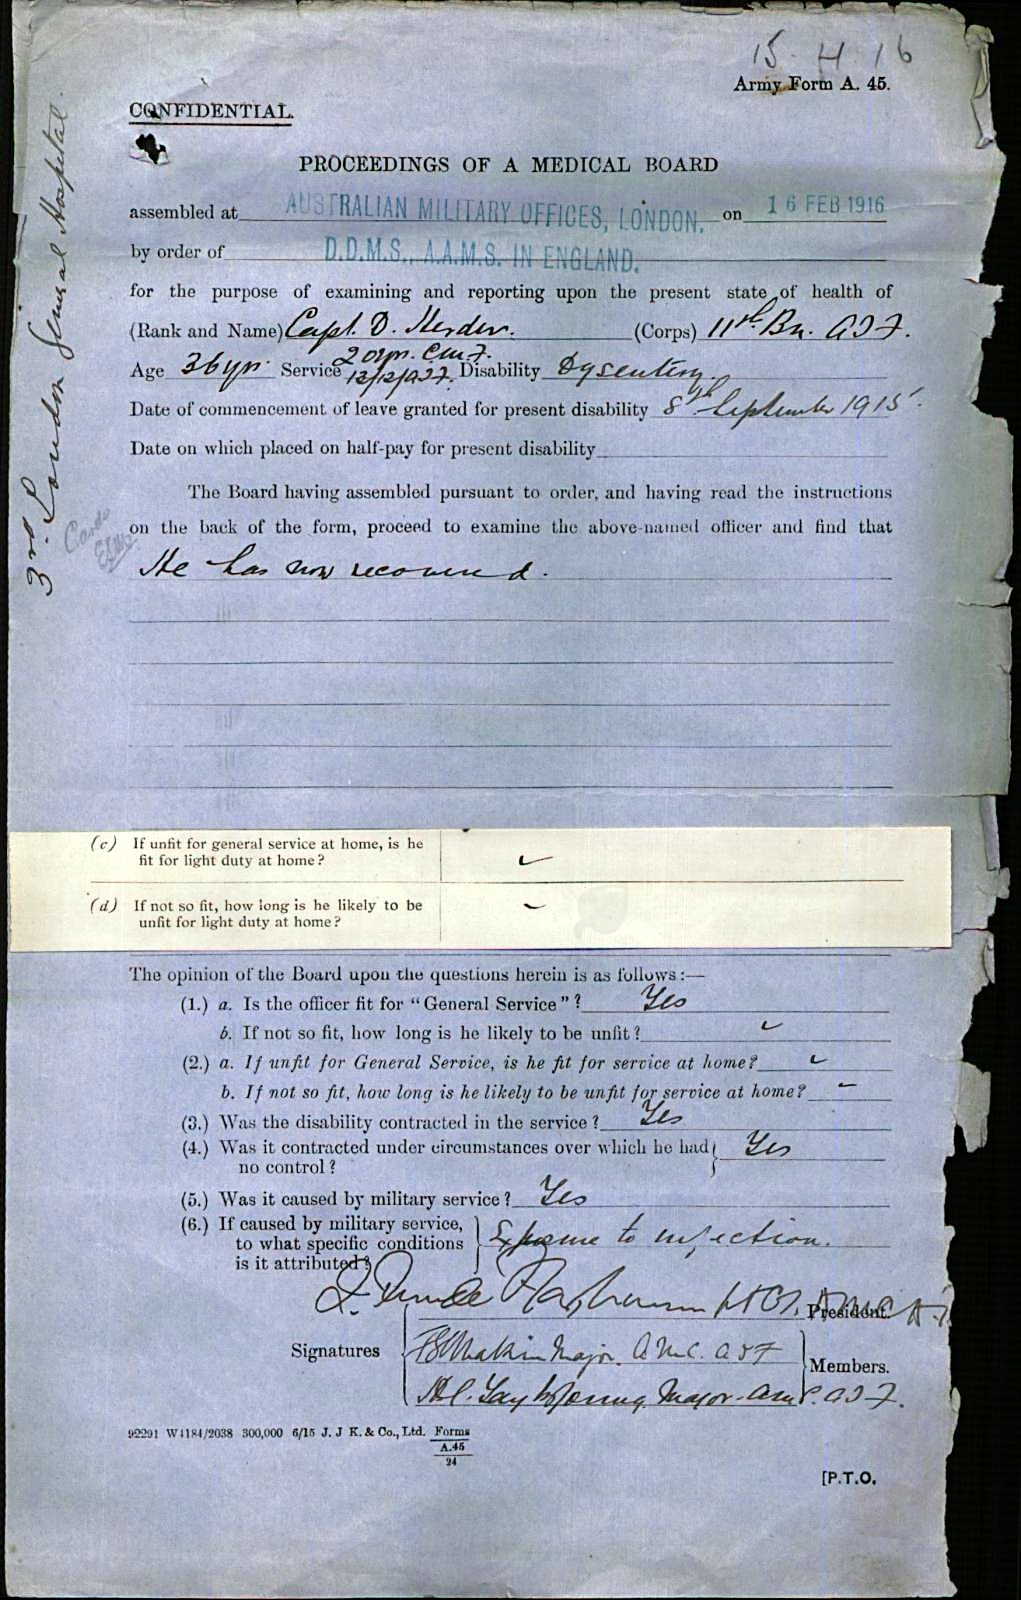 15 4 16
Army Form A. 45.
CONFIDENTIAL.
3rd. London General Hospital.
PROCEEDINGS OF A MEDICAL BOARD
assembled at AUSTRALIAN MILITARY OFFICES, LONDON. on 16 FEB 1916
by order of D.D.M.S., A.A.M.S. IN ENGLAND.
for the purpose of examining and reporting upon the present state of health of
(Rank and Name) Capt. D. (Corps) 11th Bn. A I F.
Age 36 yrs. Service Disability Dysentery.
Date of commencement of leave granted for present disability 8th September 1915.
Date on which placed on half-pay for present disability
The Board having assembled pursuant to order, and having read the instructions
on the back of the form, proceed to examine the above-named officer and find that
He has now recovered.
(c) If unfit for general service at home, is he
fit for light duty at home?
(d) If not so fit, how long is he likely to be
unfit for light duty at home?
The opinion of the Board upon the questions herein is as follows:—
(1.) a. Is the officer fit for "General Service"? Yes
b. If not so fit, how long is he likely to be unfit?
(2.) a. If unfit for General Service, is he fit for service at home?
b. If not so fit, how long is he likely to be unfit for service at home?
(3.) Was the disability contracted in the service? Yes
(4.) Was it contracted under circumstances over which he had Yes
no control?
(5.) Was it caused by military service? Yes
(6.) If caused by military service,
to what specific conditions Exposure to infection.
is it attributed?
President.
Signatures Makin Major. A M C. A I F
Members.
Major A I F.
92291 W4184/2038 300,000 6/15 J. J. K. & Co., Ltd. Forms
A.45
24
[P.T.O.